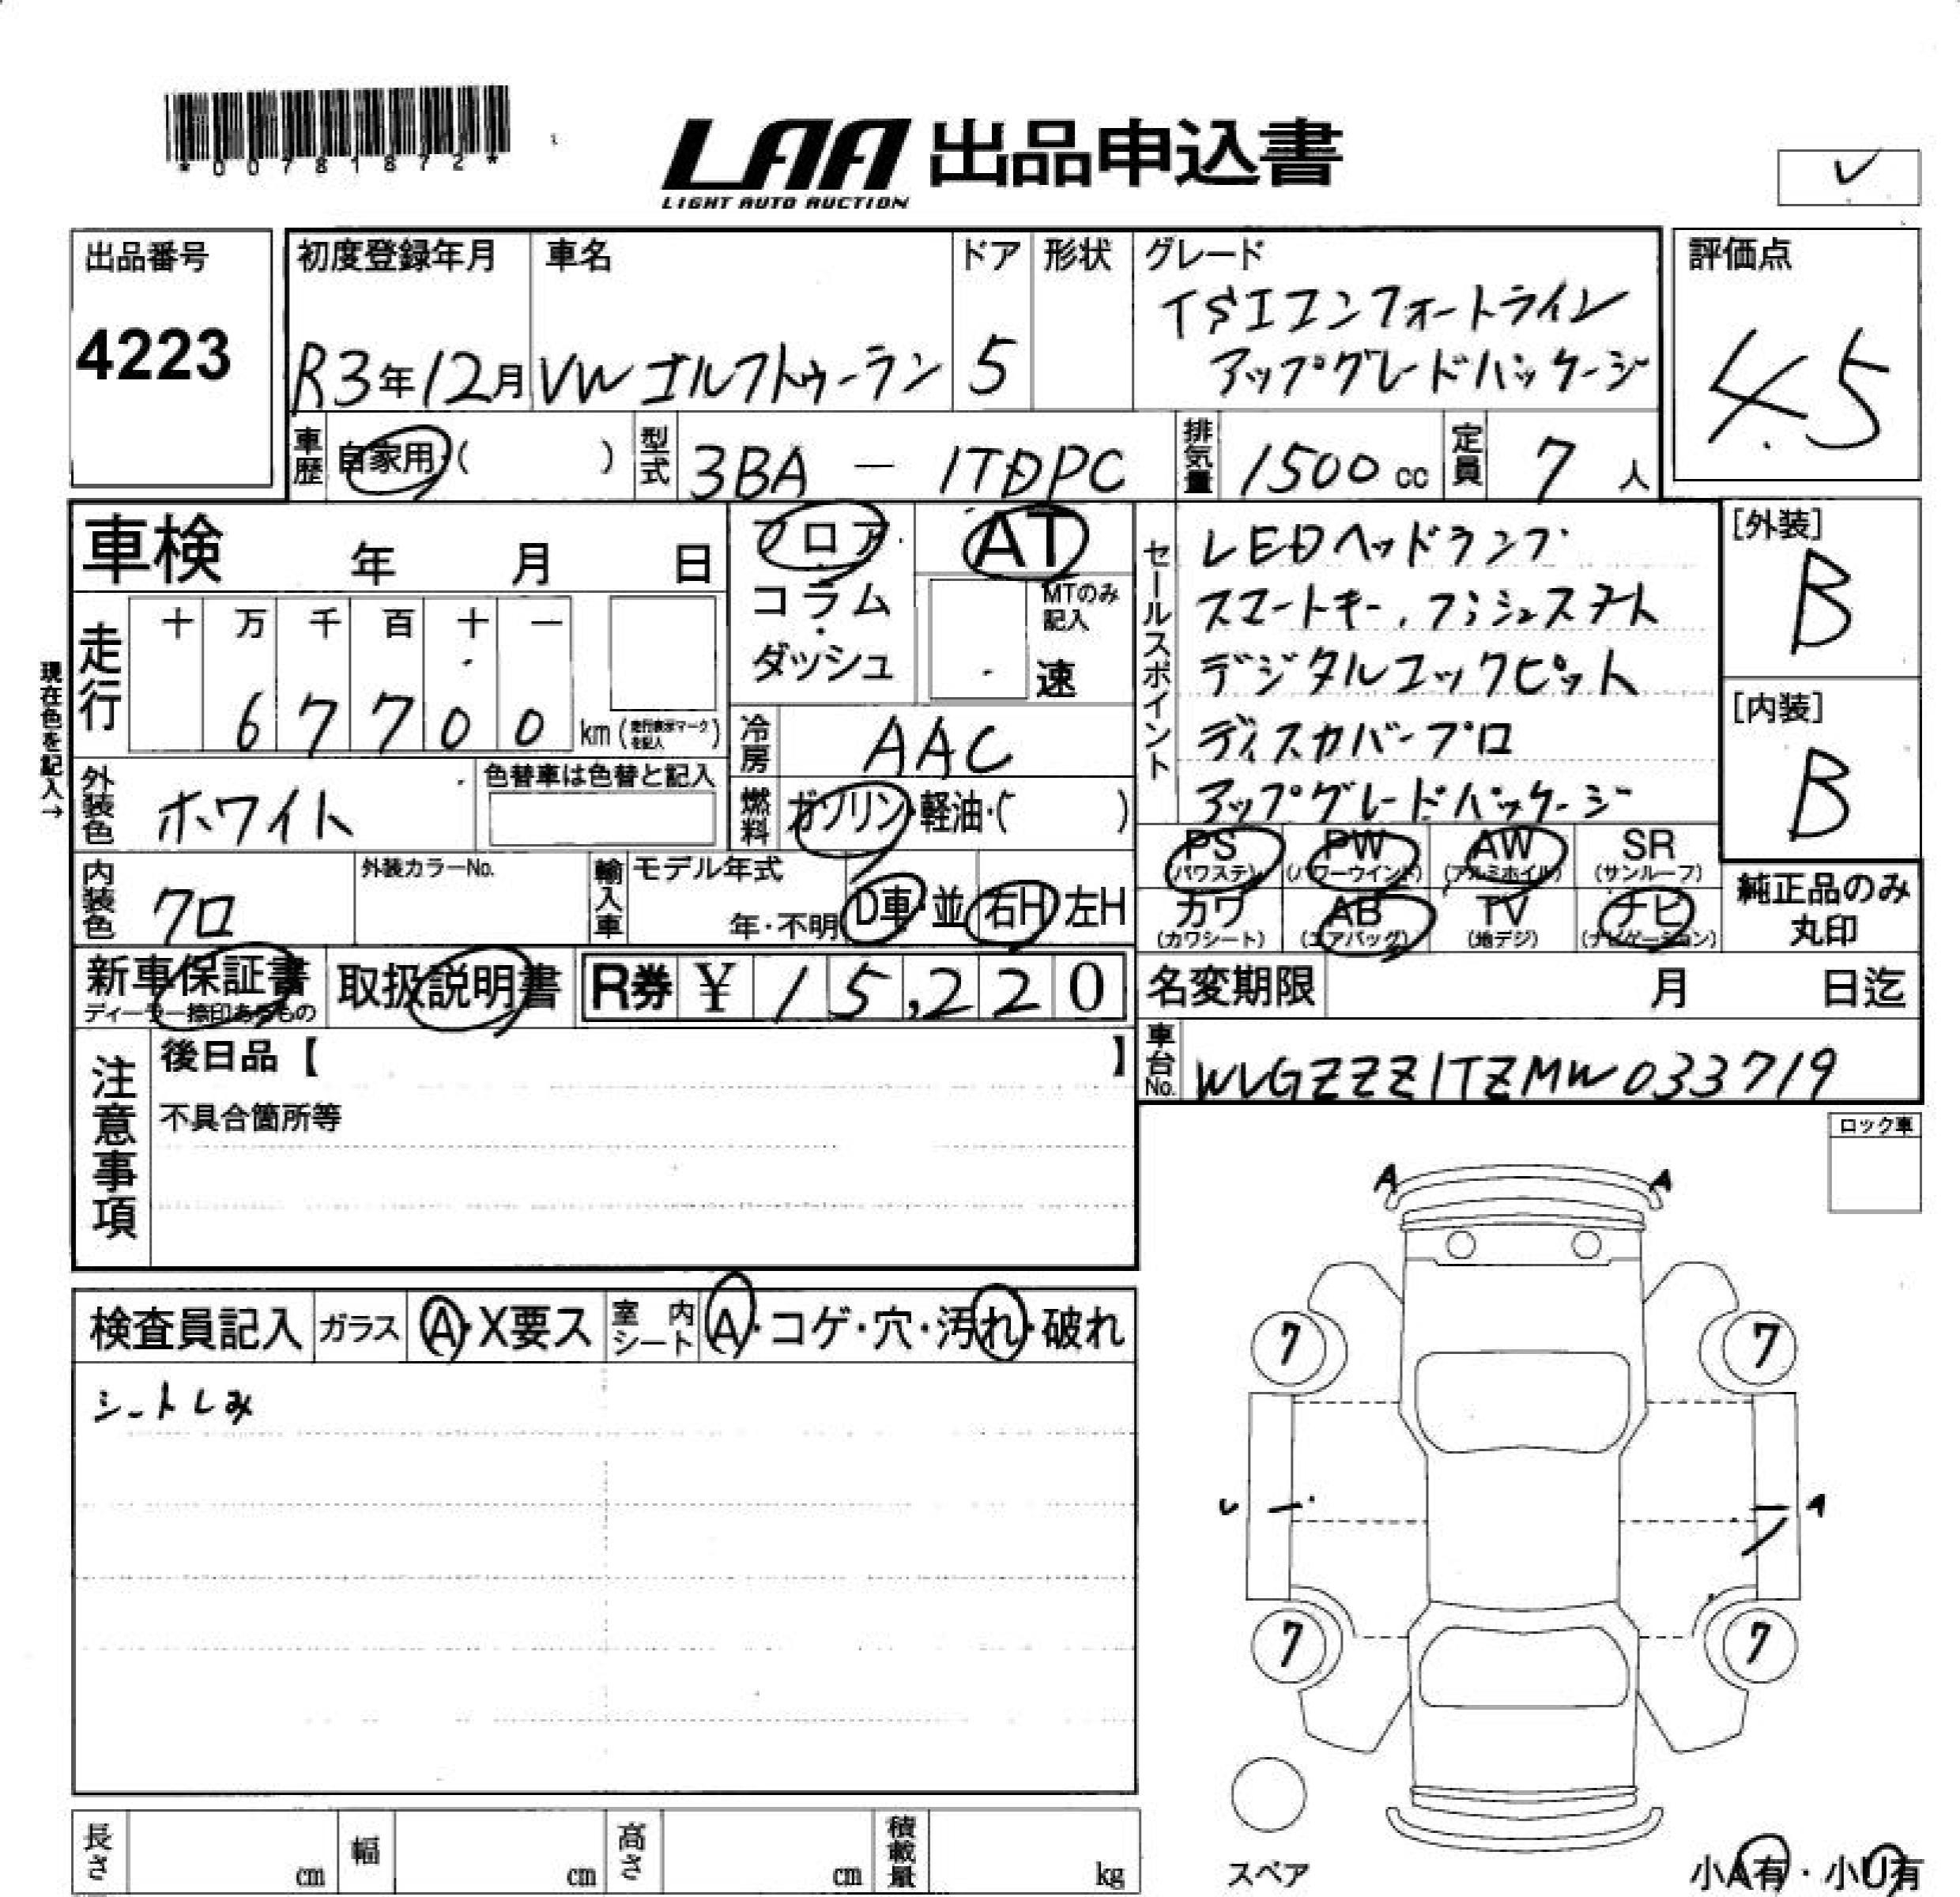 *00781872*
LAA 出品申込書
LIGHT AUTO AUCTION
出品番号
4223
初度登録年月
R3年12月
車名
VWゴルフトゥーラン
ドア
5
形状
グレード
TSIコンフォートライン
アップグレードパッケージ
評価点
4.5
車歴 自家用・( )
型式 3BA - 1TDPC
排気量 1500cc
定員 7人
車検 年 月 日
フロア・
コラム・
ダッシュ
AT
MTのみ記入
速
現在色を記入→
走行 十 万 千 百 十 一
67700 km (走行表示マークを記入)
冷房 AAC
外装色 ホワイト
色替車は色替と記入
燃料 ガソリン・軽油・( )
内装色 クロ
外装カラーNo.
輸入車 モデル年式
年・不明 D車・並 右H 左H
セールスポイント
LEDヘッドランプ
スマートキー、プッシュスタート
デジタルコックピット
ディスカバープロ
アップグレードパッケージ
[外装]
B
[内装]
B
PS (パワステ)
PW (パワーウインド)
AW (アルミホイル)
SR (サンルーフ)
カワ (カワシート)
AB (エアバッグ)
TV (地デジ)
ナビ (ナビゲーション)
純正品のみ
丸印
新車保証書
ディーラー捺印あるもの
取扱説明書
R券 ¥15,220
名変期限 月 日迄
車台No. WVGZZZ1TZMW033719
注意事項
後日品【 】
不具合箇所等
ロック車
検査員記入 ガラス A・X要ス 室内シート A・コゲ・穴・汚れ・破れ
シートしみ
A A
7 7
A
7 7
スペア
小A有・小U有
長さ cm 幅 cm 高さ cm 積載量 kg